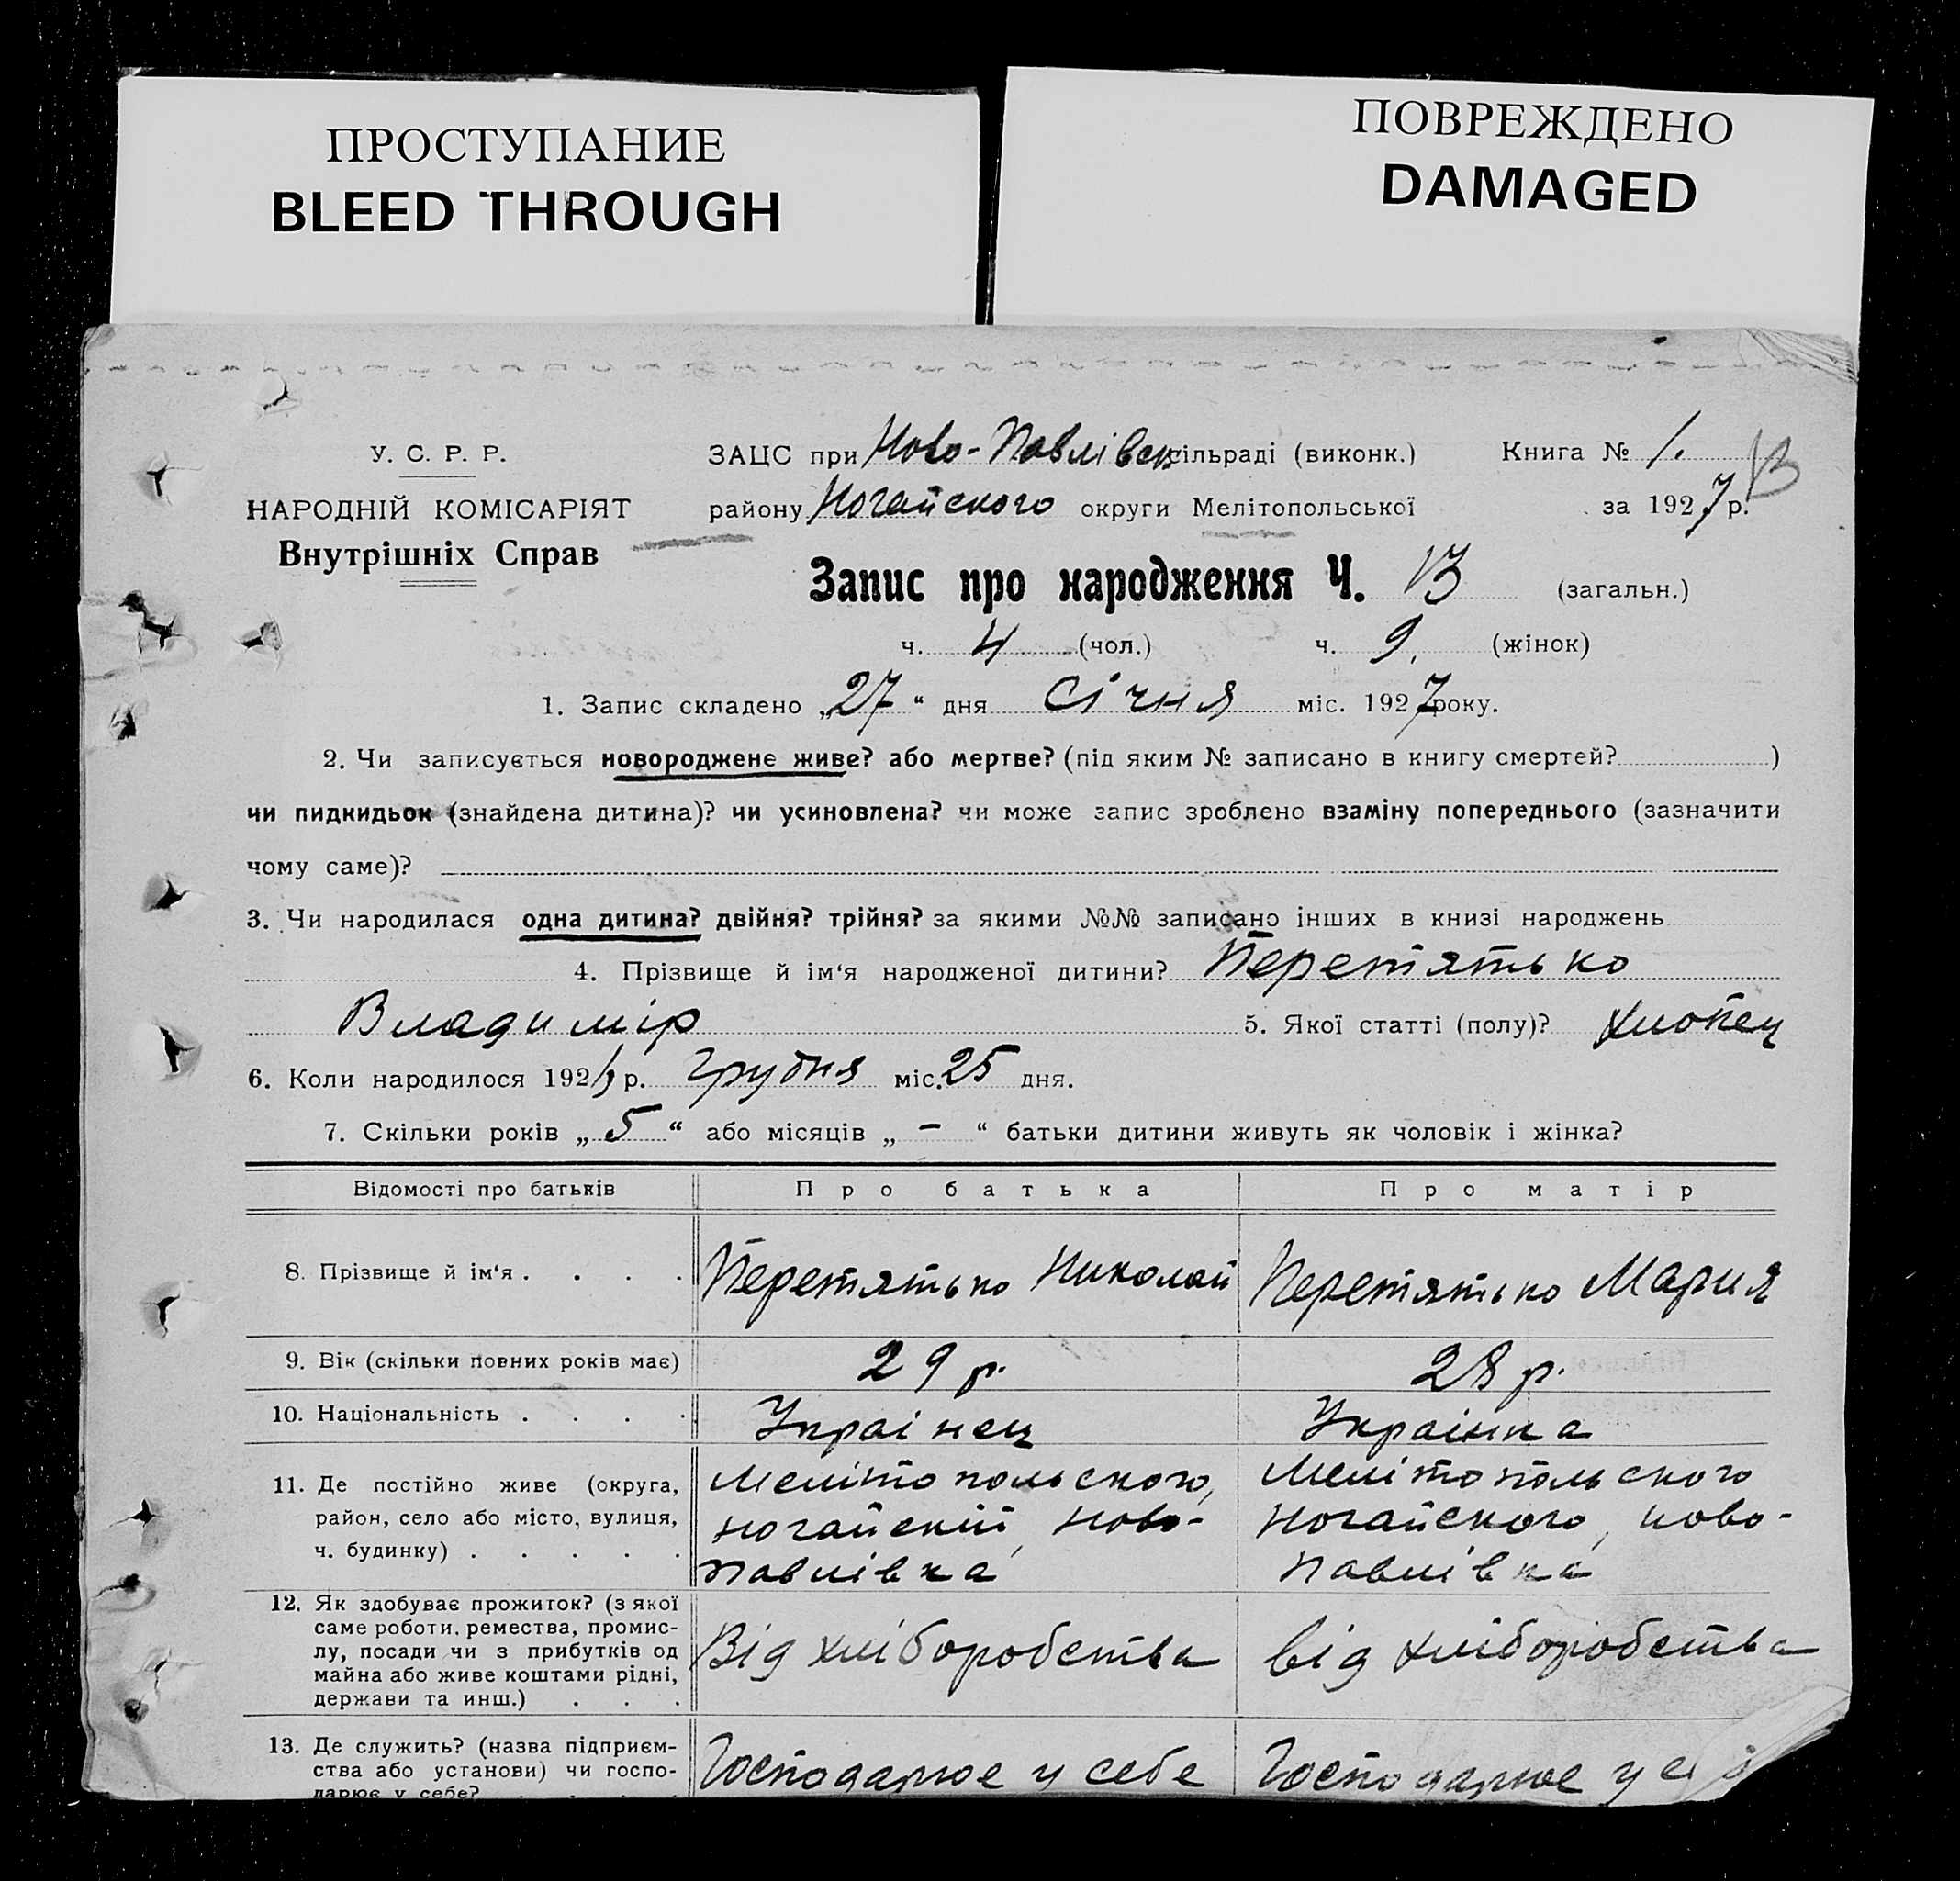 ПРОСТУПАНИЕ
BLEED THROUGH
ПОВРЕЖДЕНО
DAMAGED
У. С. Р. Р.
НАРОДНІЙ КОМІСАРІЯТ
Внутрішніх Справ
ЗАЦС при Ново-Павлівск сільраді (виконк.)
району Ногайского округи Мелітопольської
Книга № 1.
за 1927 р.
13
Запис про народження Ч. 13 (загальн.)
ч. 4 (чол.) ч. 9. (жінок)
1. Запис складено „27“ дня січня міс. 1927 року.
2. Чи записується новороджене живе? або мертве? (під яким № записано в книгу смертей? )
чи пидкидьок (знайдена дитина)? чи усиновлена? чи може запис зроблено взаміну попереднього (зазначити
чому саме)?
3. Чи народилася одна дитина? двійня? трійня? за якими №№ записано інших в книзі народжень
4. Прізвище й ім‘я народженої дитини? Перетятько
Владимір 5. Якої статті (полу)? хлопец
6. Коли народилося 192 р. Грудня міс. 25 дня.
7. Скільки років „5“ або місяців „–“ батьки дитини живуть як чоловік і жінка?
Відомості про батьків Про батька Про матір
8. Прізвище й ім‘я . . . . Перетятько Николай Перетятько Мария
9. Вік (скільки повних років має) 29 р. 28 р.
10. Національність . . . . Украінец Украінка
11. Де постійно живе (округа, Мелітопольского, Мелітопольского
район, село або місто, вулиця, Ногайский, Ново- Ногайского, ново-
ч. будинку) . . . . . павлівка павлівка
12. Як здобуває прожиток? (з якої
саме роботи, ремества, промис-
лу, посади чи з прибутків од Від хліборобства від хліборобства
майна або живе коштами рідні,
держави та инш.) . . .
13. Де служить? (назва підприєм-
ства або установи) чи госпо- Господарює у себе Господарює у
дарює у себе? . . . .